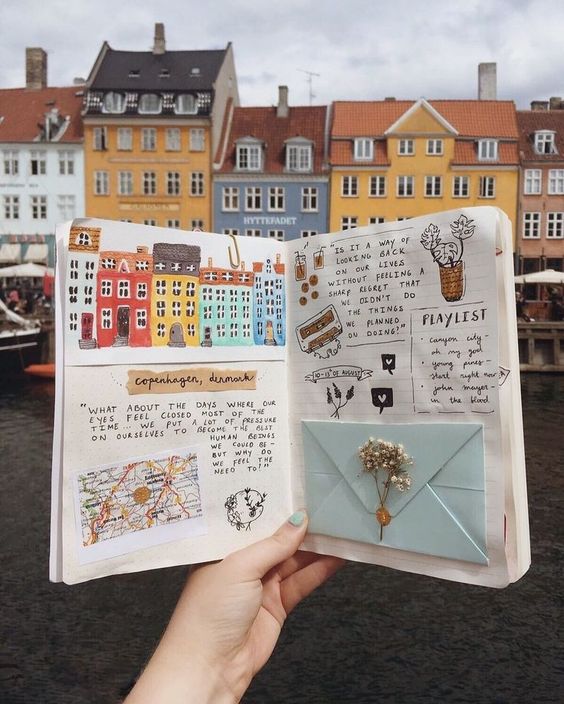 HYTTEFADET
copenhagen, denmark
"WHAT ABOUT THE DAYS WHERE OUR
EYES FEEL CLOSED MOST OF THE
TIME... WE PUT A LOT OF PRESSURE
ON OURSELVES TO BECOME THE BEST
HUMAN BEINGS
WE COULD BE-
BUT WHY DO
WE FEEL THE
NEED TO?"
"IS IT A WAY OF
LOOKING BACK
ON OUR LIVES
WITHOUT FEELING A
SHARP REGRET THAT
WE DIDN'T DO
THE THINGS
WE PLANNED
ON DOING?"
10-13th OF AUGUST
PLAYLEST
• canyon city
oh my god
• young pines-
start right now
• john mayer-
in the blood